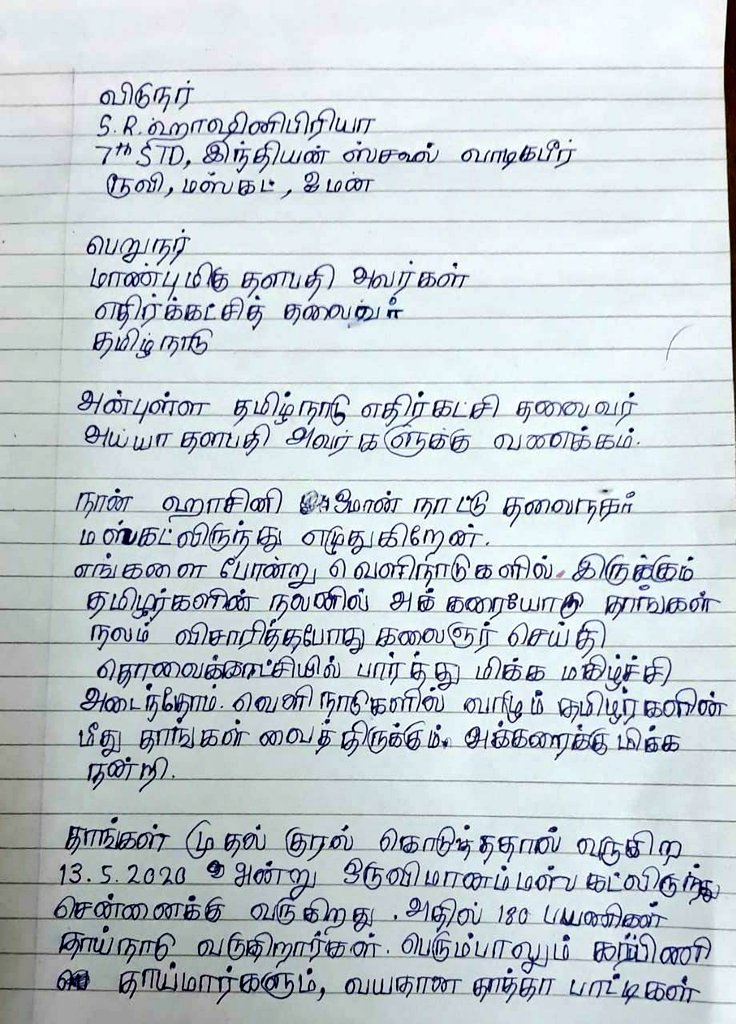 விடுநர்
S.R.ஹாஷினிபிரியா
7th STD, இந்தியன் ஸ்கூல் வாடிகபீர்
ரூவி, மஸ்கட், ஓமன்
பெறுநர்
மாண்புமிகு தளபதி அவர்கள்
எதிர்க்கட்சித் தலைவர்
தமிழ்நாடு
அன்புள்ள தமிழ்நாடு எதிர்கட்சி தலைவர்
அய்யா தளபதி அவர்களுக்கு வணக்கம்.
நான் ஹாசினி ஓமான் நாட்டு தலைநகர்
மஸ்கட்லிருந்து எழுதுகிறேன்.
எங்களை போன்று வெளிநாடுகளில் இருக்கும்
தமிழர்களின் நலனில் அக்கரையோடு தாங்கள்
நலம் விசாரித்தபோது கலைஞர் செய்தி
தொலைக்காட்சியில் பார்த்து மிக்க மகிழ்ச்சி
அடைந்தோம். வெளிநாடுகளில் வாழும் தமிழர்களின்
மீது தாங்கள் வைத்திருக்கும் அக்கரைக்கு மிக்க
நன்றி.
தாங்கள் முதல் குரல் கொடுத்ததால் வருகிற
13.5.2020 அன்று ஒருவிமானம் மஸ்கட்லிருந்து
சென்னைக்கு வருகிறது. அதில் 180 பயணிகள்
தாய்நாடு வருகிறார்கள். பெரும்பாலும் கர்ப்பிணி
தாய்மார்களும், வயதான தாத்தா பாட்டிகள்